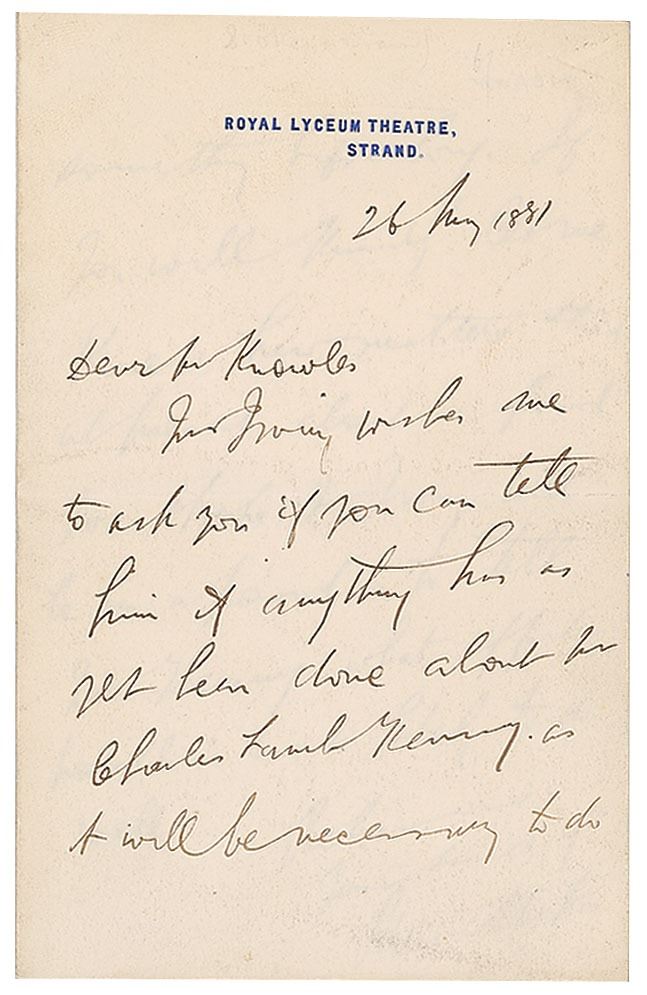 ROYAL LYCEUM THEATRE,
STRAND.
26 May 1881
Dear Mr Knowles
Mr Irving wishes me
to ask you if you can tell
him if anything has as
yet been done about Mr
Charles Lamb Kenney. as
it will be necessary to do